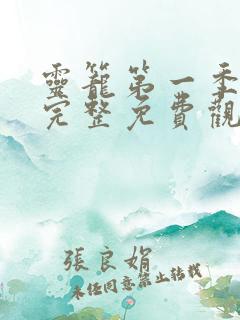 靈籠第一季
完整免費觀
張良娟
未經同意禁止轉載